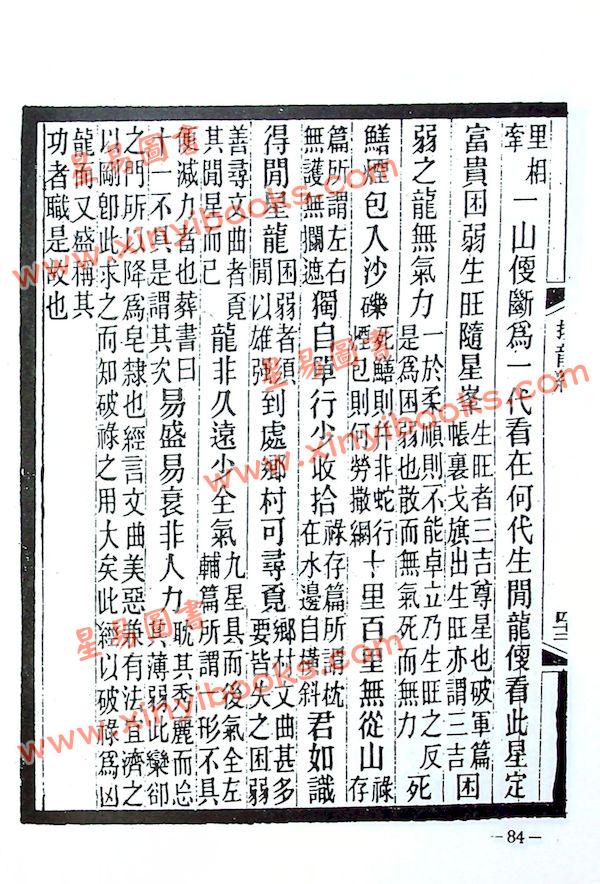 撼龍經
四三
里相牽一山便斷為一代看在何代生閒龍便看此星定
富貴困弱生旺隨星峯生旺者三吉尊星也破軍篇帳裏戈旗出生旺亦謂三吉困
弱之龍無氣力一於柔順則不能卓立乃生旺之反是為困弱也散而無氣死而無力死
鱔煙包入沙礫死鱔則並非蛇行煙包則何勞撒網十里百里無從山祿存
篇所謂左右無護無攔遮獨自單行少收拾祿存篇所謂枕在水邊自橫斜君如識
得閒星龍困弱者須閒以雄強到處鄉村可尋覓鄉村文曲甚多要皆失之困弱
善尋文曲者覓其閒星而已龍非久遠少全氣九星具而後氣全左輔篇所謂一形不具
便減力者也葬書曰十一不具是謂其次易盛易衰非人力耽其秀麗而忘其薄弱此欒卻
之門所以降為皂隸也經言文曲美惡兼有法宜濟之以剛卽此求之而知破祿之用大矣此經以破祿為凶
龍而又盛稱其功者職是故也
-84-
星易圖書
www.xinyibooks.com
星易圖書
www.xinyibooks.com
星易圖書
www.xinyibooks.com